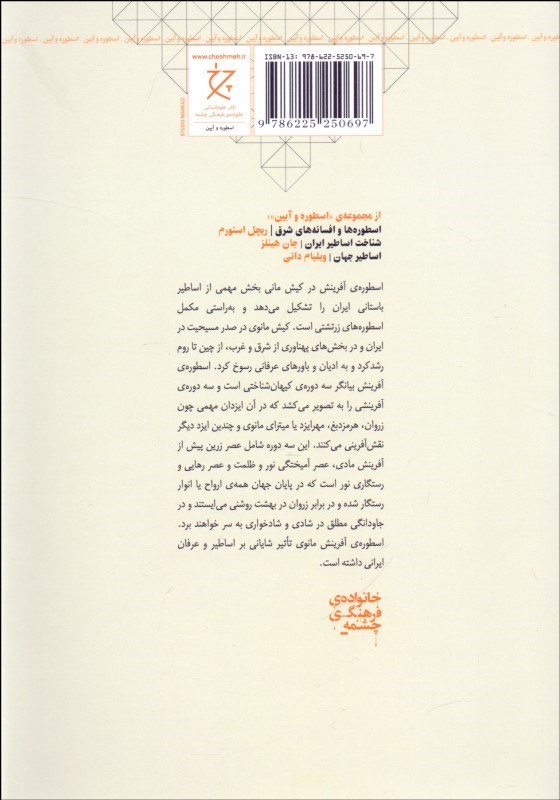 اسطوره و آیین . اسطوره و آیین . اسطوره و آیین . اسطوره و آیین . اسطوره و آیین . اسطوره و آیین . اسطوره و آیین . اسطوره و آیین
www.cheshmeh.ir
ناشر علوم‌انسانی
خانواده‌ی فرهنگی چشمه
اسطوره و آیین
STUDIO MARKAD
ISBN-13: 978-622-5250-69-7
9 786225 250697
از مجموعه‌ی «اسطوره و آیین»:
اسطوره‌ها و افسانه‌های شرق | ریچل استورم
شناخت اساطیر ایران | جان هینلز
اساطیر جهان | ویلیام داتی
اسطوره‌ی آفرینش در کیش مانی بخش مهمی از اساطیر
باستانی ایران را تشکیل می‌دهد و به‌راستی مکمل
اسطوره‌های زرتشتی است. کیش مانوی در صدر مسیحیت در
ایران و در بخش‌های پهناوری از شرق و غرب، از چین تا روم
رشد کرد و به ادیان و باورهای عرفانی رسوخ کرد. اسطوره‌ی
آفرینش بیانگر سه دوره‌ی کیهان‌شناختی است و سه دوره‌ی
آفرینشی را به تصویر می‌کشد که در آن ایزدان مهمی چون
زروان، هرمزدبغ، مهرایزد یا میترای مانوی و چندین ایزد دیگر
نقش‌آفرینی می‌کنند. این سه دوره شامل عصر زرین پیش از
آفرینش مادی، عصر آمیختگی نور و ظلمت و عصر رهایی و
رستگاری نور است که در پایان جهان همه‌ی ارواح یا انوار
رستگار شده و در برابر زروان در بهشت روشنی می‌ایستند و در
جاودانگی مطلق در شادی و شادخواری به سر خواهند برد.
اسطوره‌ی آفرینش مانوی تأثیر شایانی بر اساطیر و عرفان
ایرانی داشته است.
خانواده‌ی
فرهنگی
چشمه